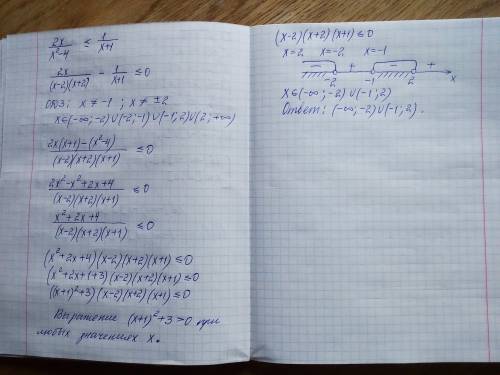 2x/(x²-4) ≤ 1/(x+1)
2x/((x-2)(x+2)) - 1/(x+1) ≤ 0
ОДЗ: x ≠ -1 ; x ≠ ±2
x∈(-∞;-2)∪(-2;-1)∪(-1;2)∪(2;+∞)
(2x(x+1)-(x²-4))/((x-2)(x+2)(x+1)) ≤ 0
(2x²-x²+2x+4)/((x-2)(x+2)(x+1)) ≤ 0
(x²+2x+4)/((x-2)(x+2)(x+1)) ≤ 0
(x²+2x+4)(x-2)(x+2)(x+1) ≤ 0
(x²+2x+1+3)(x-2)(x+2)(x+1) ≤ 0
((x+1)²+3)(x-2)(x+2)(x+1) ≤ 0
Выражение (x+1)²+3 > 0 при
любых значениях x.
(x-2)(x+2)(x+1) ≤ 0
x=2 x=-2 x=-1
- + - +
-2 -1 2 x
x∈(-∞;-2)∪(-1;2)
Ответ: (-∞;-2)∪(-1;2).